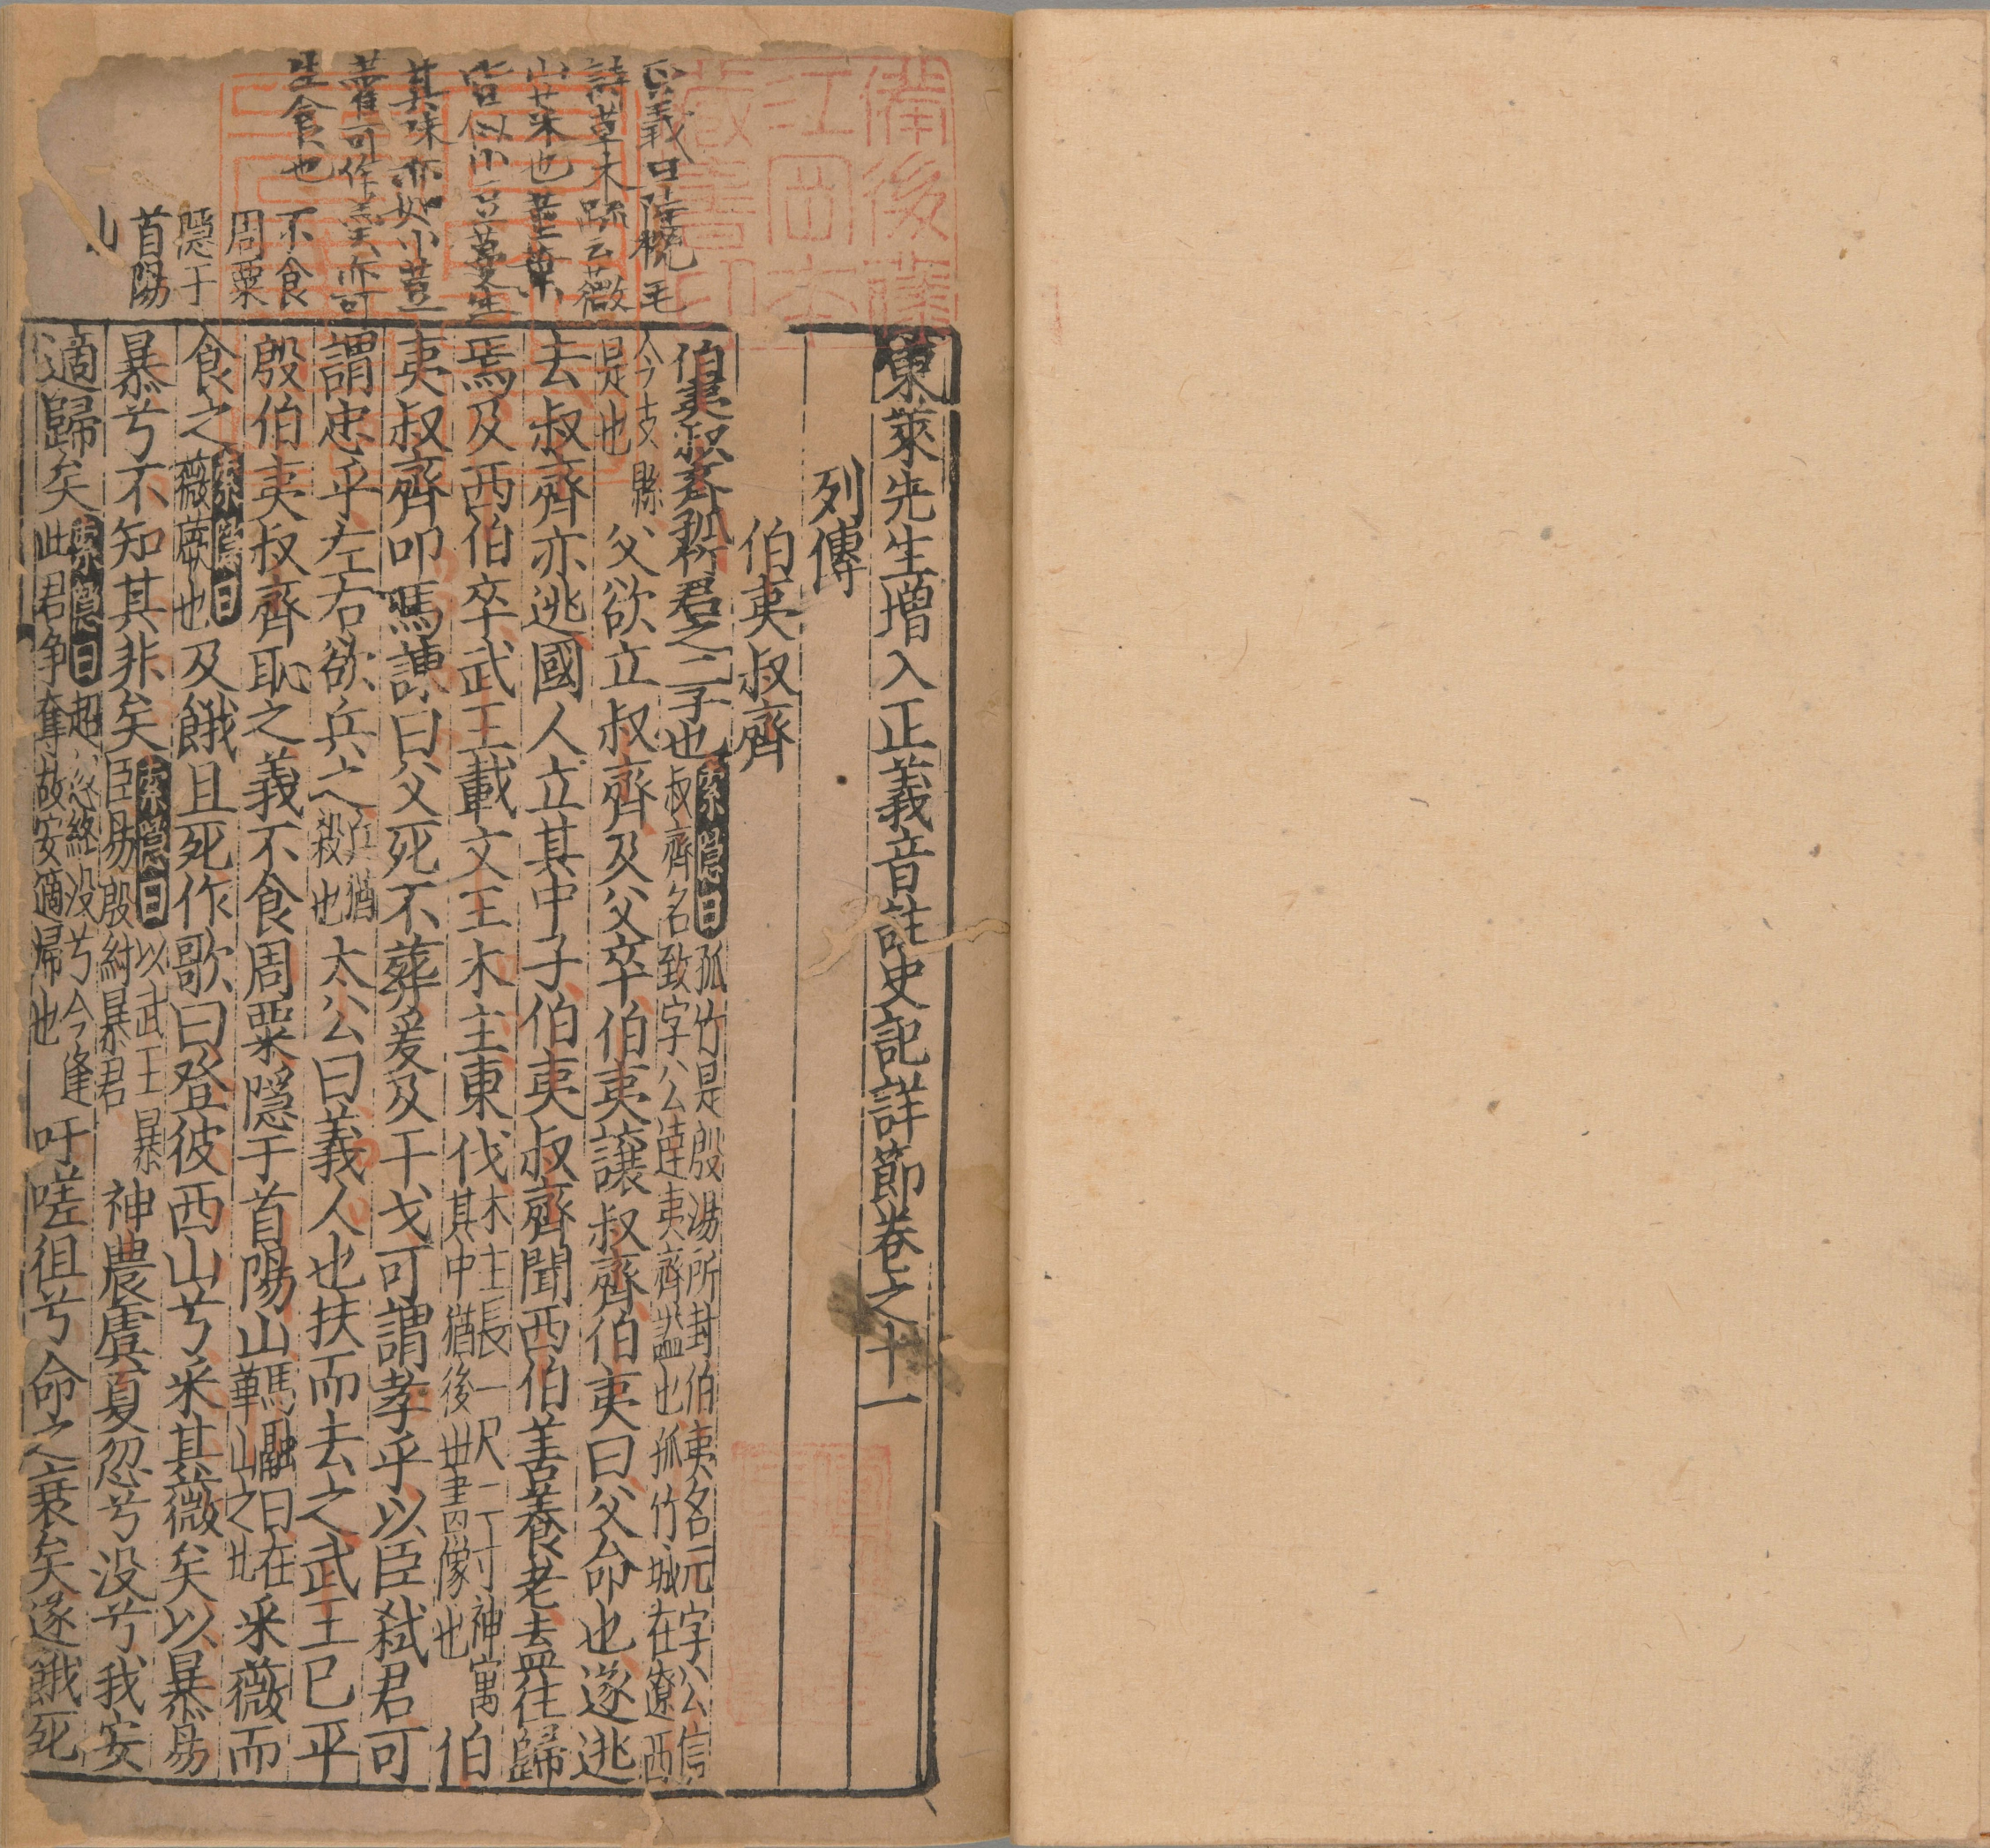 東萊先生增入正義音註史記詳節卷之十一
列傳
伯夷叔齊
伯夷叔齊孤竹君之二子也索隱曰孤竹是殷湯所封伯夷名元字公信
叔齊名致字公達夷齊謚也孤竹城在遼西
令支縣
是也父欲立叔齊及父卒伯夷讓叔齊伯夷曰父命也遂逃
去叔齊亦逃國人立其中子伯夷叔齊聞西伯善養老去盍往歸
焉及西伯卒武王載文王木主東伐木主長一尺二寸神寓
其中猶後世畫像也伯
夷叔齊叩馬諫曰父死不葬爰及干戈可謂孝乎以臣弑君可
謂忠乎左右欲兵之兵猶
殺也太公曰義人也扶而去之武王已平
殷伯夷叔齊恥之義不食周粟隱于首陽山馬融曰在
華山之北采薇而
食之索隱曰
薇蕨也及餓且死作歌曰登彼西山兮采其薇矣以暴易
暴兮不知其非矣索隱曰以武王暴
臣易殷紂暴君神農虞夏忽兮没兮我安
適歸矣索隱曰超忽終没兮今逢
此君争奪故安適歸也吁嗟徂兮命之衰矣遂餓死
正義曰陸機毛
詩草木疏云薇
山菜也莖葉
皆似小豆蔓生
其味亦如小荳
藿可作羹亦可
生食也
不食
周粟
隱于
首陽
備後薩
江田本
藏書印